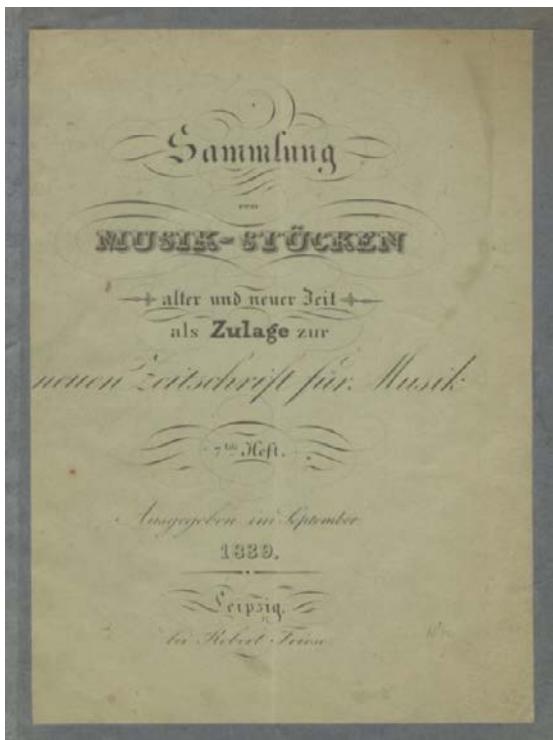 Sammlung
von
MUSIK-STÜCKEN
alter und neuer Zeit
als Zulage zur
neuen Zeitschrift für Musik
7tes Heft.
Ausgegeben im September
1839.
Leipzig,
bei Robert Friese